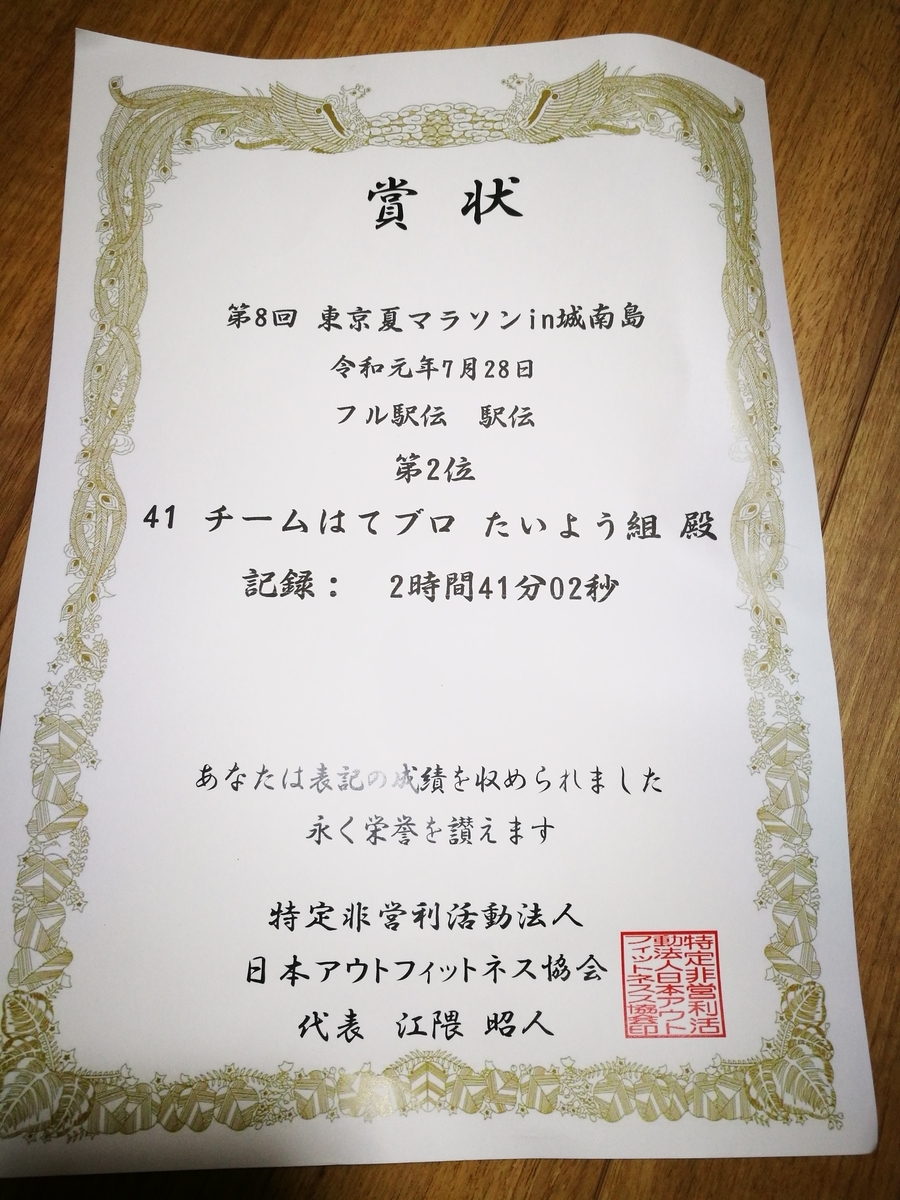 賞 状
第8回 東京夏マラソンin城南島
令和元年7月28日
フル駅伝 駅伝
第2位
41 チームはてブロ たいよう組 殿
記録: 2時間41分02秒
あなたは表記の成績を収められました
永く栄誉を讃えます
特定非営利活動法人
日本アウトフィットネス協会
代表 江隈 昭人
特定非営利活
動法人日本アウト
フィットネス協会印